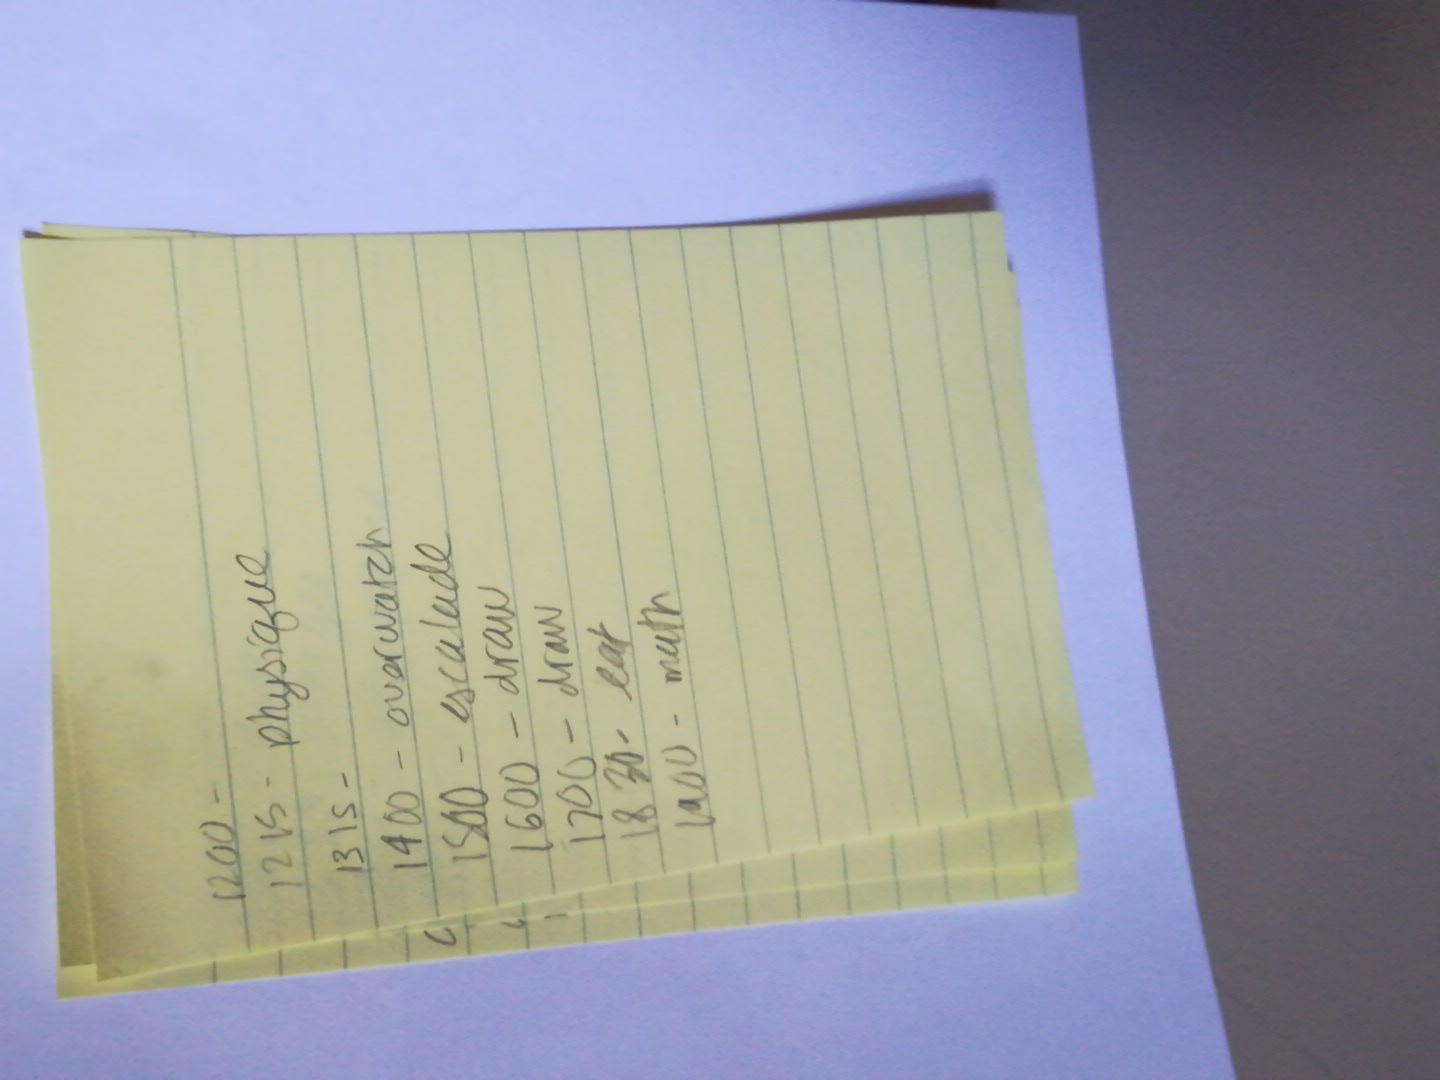 1200 -
1215 - physique
1315 -
1400 - overwatch
1500 - escalade
1600 - draw
1700 - draw
1830 - eat
1900 - math